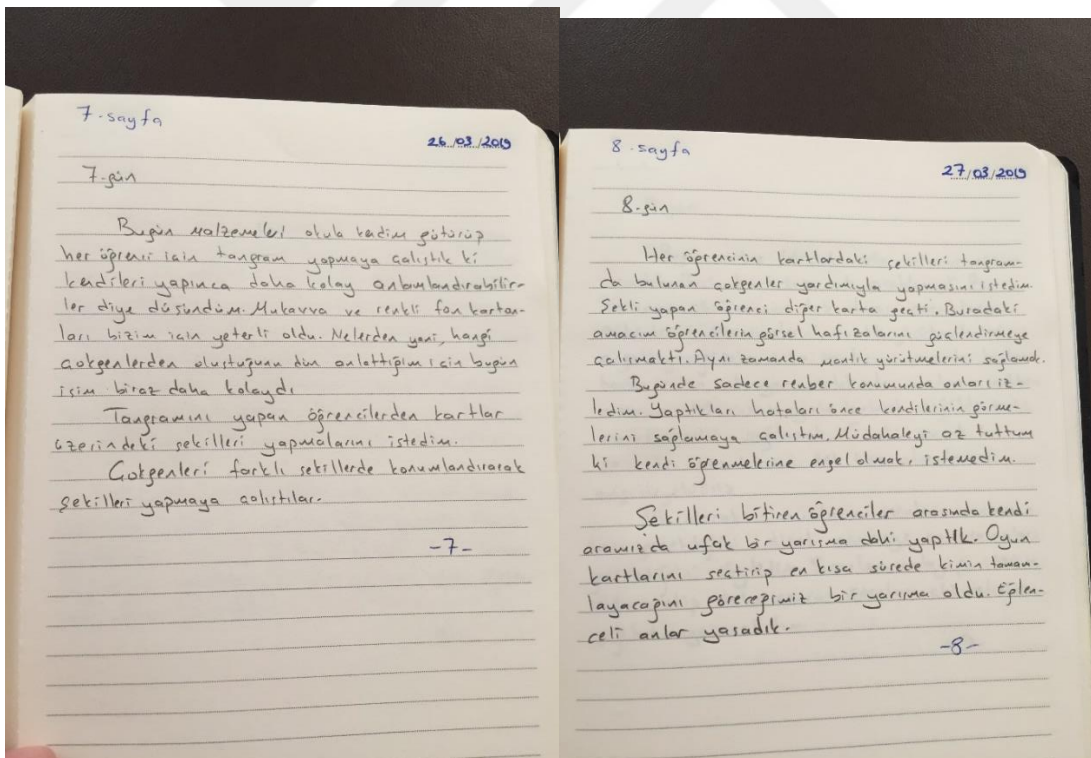 7.sayfa
26/03/2019
7.gün
Bugün malzemeleri okula kadim götürüp
her öğrenci için tangram yapmaya çalıştık ki
kendileri yapınca daha kolay anlamlandırabilir-
ler diye düşündüm. Mukavva ve renkli fon karton-
ları bizim için yeterli oldu. Nelerden yani, hangi
çokgenlerden oluştuğunu dün anlattığım için bugün
işim biraz daha kolaydı
Tangramını yapan öğrencilerden kartlar
üzerindeki şekilleri yapmalarını istedim.
Çokgenleri farklı şekillerde konumlandırarak
şekilleri yapmaya çalıştılar.
-7-
8.sayfa
27/03/2019
8.gün
Her öğrencinin kartlardaki şekilleri tangram-
da bulunan çokgenler yardımıyla yapmasını istedim.
Şekli yapan öğrenci diğer karta geçti. Buradaki
amacım öğrencilerin görsel hafızalarını güçlendirmeye
çalışmaktı. Aynı zamanda mantık yürütmelerini sağlamak.
Bugünde sadece rehber konumunda onları iz-
ledim. Yaptıkları hataları önce kendilerinin görme-
lerini sağlamaya çalıştım. Müdahaleyi az tuttum
ki kendi öğrenmelerine engel olmak, istemedim.
Şekilleri bitiren öğrenciler arasında kendi
aramızda ufak bir yarışma dahi yaptık. Oyun
kartlarını seçtirip en kısa sürede kimin tamam-
layacağını göreceğimiz bir yarışma oldu. Eğlen-
celi anlar yaşadık.
-8-